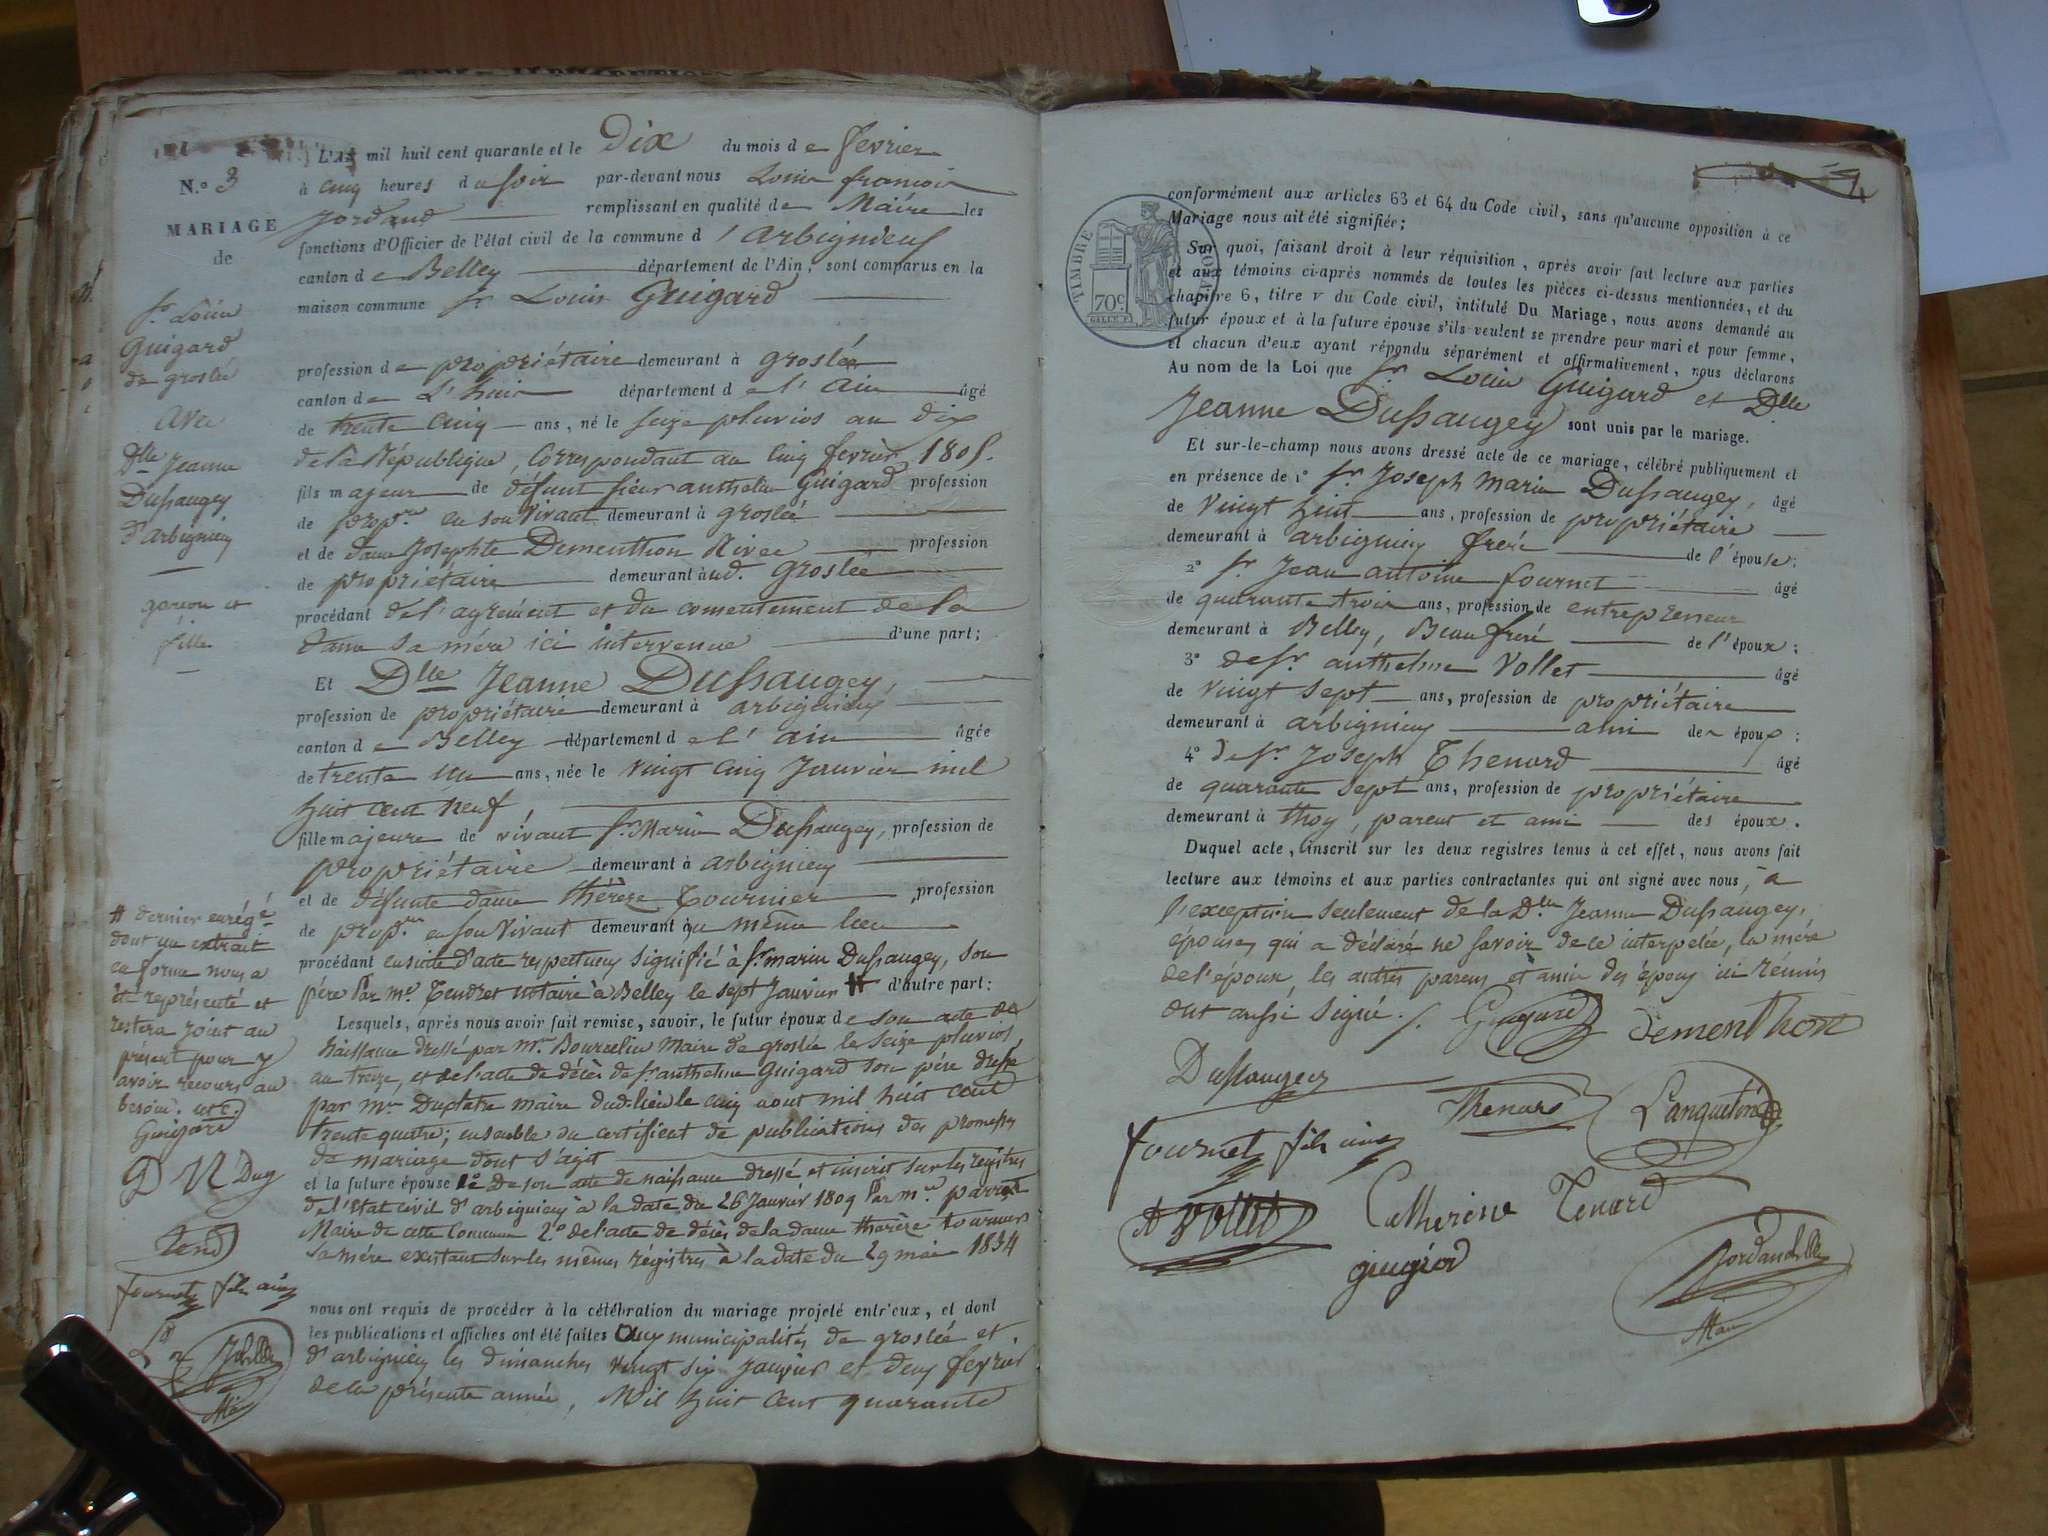 L'an mil huit cent quarante et le Dix du mois de fevrier
N.o 3
à cinq heures du soir par-devant nous Louis françois
MARIAGE
Jordand remplissant en qualité de Maire les
fonctions d'Officier de l'état civil de la commune d'arbignieu
de
canton de Belley département de l'Ain, sont comparus en la
maison commune Sr Louis Guigard
Sr Louis
Guigard
de groslée
avec
Dlle Jeanne
Dussaugey
d'arbignieu
garçon et
fille
profession de propriétaire demeurant à groslée
canton de L'huis département de l'ain âgé
de trente cinq ans, né le seize pluvios an dix
de la République, Correspondant au cinq fevrier 1805.
fils majeur de défunt sieur anthelme Guigard profession
de propre en son vivant demeurant à groslée
et de dame Josephte Dementhon Rivee profession
de propriétaire demeurant aud. groslée
procédant de l'agrément et du consentement de la
dame sa mére ici intervenue d'une part;
Et Dlle Jeanne Dussaugey,
profession de propriétaire demeurant à arbignieu
canton de Belley département de l'ain âgée
de trente un ans, née le vingt cinq Janvier mil
huit cent neuf,
fille majeure de vivant Sr Marin Dussaugey, profession de
propriétaire demeurant à arbignieu
et de défunte dame thérèze Tournier, profession
de propre en son vivant demeurant au même lieu
procédant ensuite d'acte respectueux signifié à Sr marin Dussaugey, son
père Par me Tendret notaire à Belley le sept Janvier # d'autre part:
# dernier enrégé
dont un extrait
en forme nous a
été représenté et
restera joint au
présent pour y
avoir recours au
besoin. etc.
Guigard
Lesquels, après nous avoir fait remise, savoir, le futur époux de son acte de
naissance dressé par mr Bourcelin maire de groslée le seize pluvios,
an treize, et de l'acte de décès de Sr anthelme Guigard son père dressé
par mr maire dud. lieu le cinq aout mil huit cent
trente quatre; ensemble du certificat de publications des promesses
de mariage dont s'agit
et la future épouse 1o De son acte de naissance dressé et inscrit sur les registres
de l'état civil d'arbignieu à la date du 26 Janvier 1809 Par mr parrat
Maire de cette Commune 2.o de l'acte de décès de la dame therèze tournier
sa mére existant sur les mêmes régistres à la date du 29 mai 1834
fournet fils ainé
nous ont requis de procéder à la célébration du mariage projeté entr'eux, et dont
les publications et affiches ont été faites aux municipalités de groslée et
d'arbignieu les dimanches vingt six Janvier et deux fevrier
de la présente année, Mil huit cent quarante
conformément aux articles 63 et 64 du Code civil, sans qu'aucune opposition à ce
Mariage nous ait été signifiée;
TIMBRE
70c
Sur quoi, faisant droit à leur réquisition, après avoir fait lecture aux parties
et aux témoins ci-après nommés de toutes les pièces ci-dessus mentionnées, et du
chapitre 6, titre v du Code civil, intitulé Du Mariage, nous avons demandé au
futur époux et à la future épouse s'ils veulent se prendre pour mari et pour femme,
et chacun d'eux ayant répondu séparément et affirmativement, nous déclarons
Au nom de la Loi que Sr Louis Guigard et Dlle
Jeanne Dussaugey sont unis par le mariage.
Et sur-le-champ nous avons dressé acte de ce mariage, célébré publiquement et
en présence de 1o Sr Joseph Marin Dussaugey, âgé
de vingt huit ans, profession de propriétaire
demeurant à arbignieu frere de l'épouse;
2o Sr Jean antoine fournet âgé
de quarante trois ans, profession de entrepreneur
demeurant à Belley, Beau frere de l'époux;
3o de Sr anthelme Vollet âgé
de vingt sept ans, profession de propriétaire
demeurant à arbignieu ami des époux;
4o de Sr Joseph Thenard âgé
de quarante sept ans, profession de propriétaire
demeurant à thoy, parent et ami des époux.
Duquel acte, inscrit sur les deux registres tenus à cet effet, nous avons fait
lecture aux témoins et aux parties contractantes qui ont signé avec nous, a
l'exception seulement de la Dlle Jeanne Dussaugey,
épouse, qui a déclaré ne savoir de ce interpelée, la mére
de l'époux, les autres parens et amis des époux ici réunis
ont aussi signé. Guigard Dementhon
Dussaugey Thenard Languetin
fournet fils ainé
A Vollet Catherine Tenard
guigard Jordand
Maire